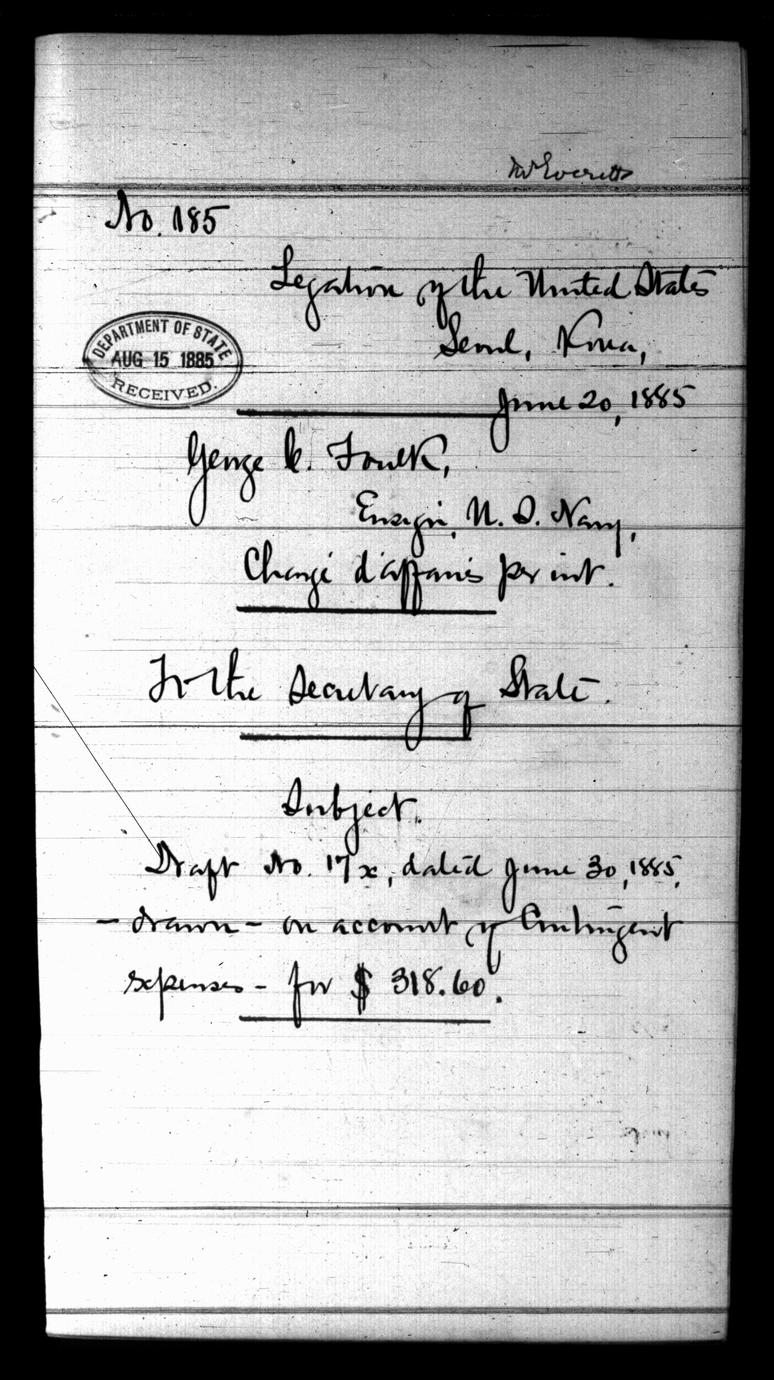 Mr Everett
No. 185
Legation of the United States
Seoul, Korea,
DEPARTMENT OF STATE
AUG 15 1885
RECEIVED.
June 20, 1885
George C. Foulk,
Ensign, U. S. Navy,
Chargé d'affaires per int.
To the Secretary of State.
Subject.
Draft No. 17x, dated June 30, 1885,
– drawn – on account of Contingent
expenses – for $ 318.60.